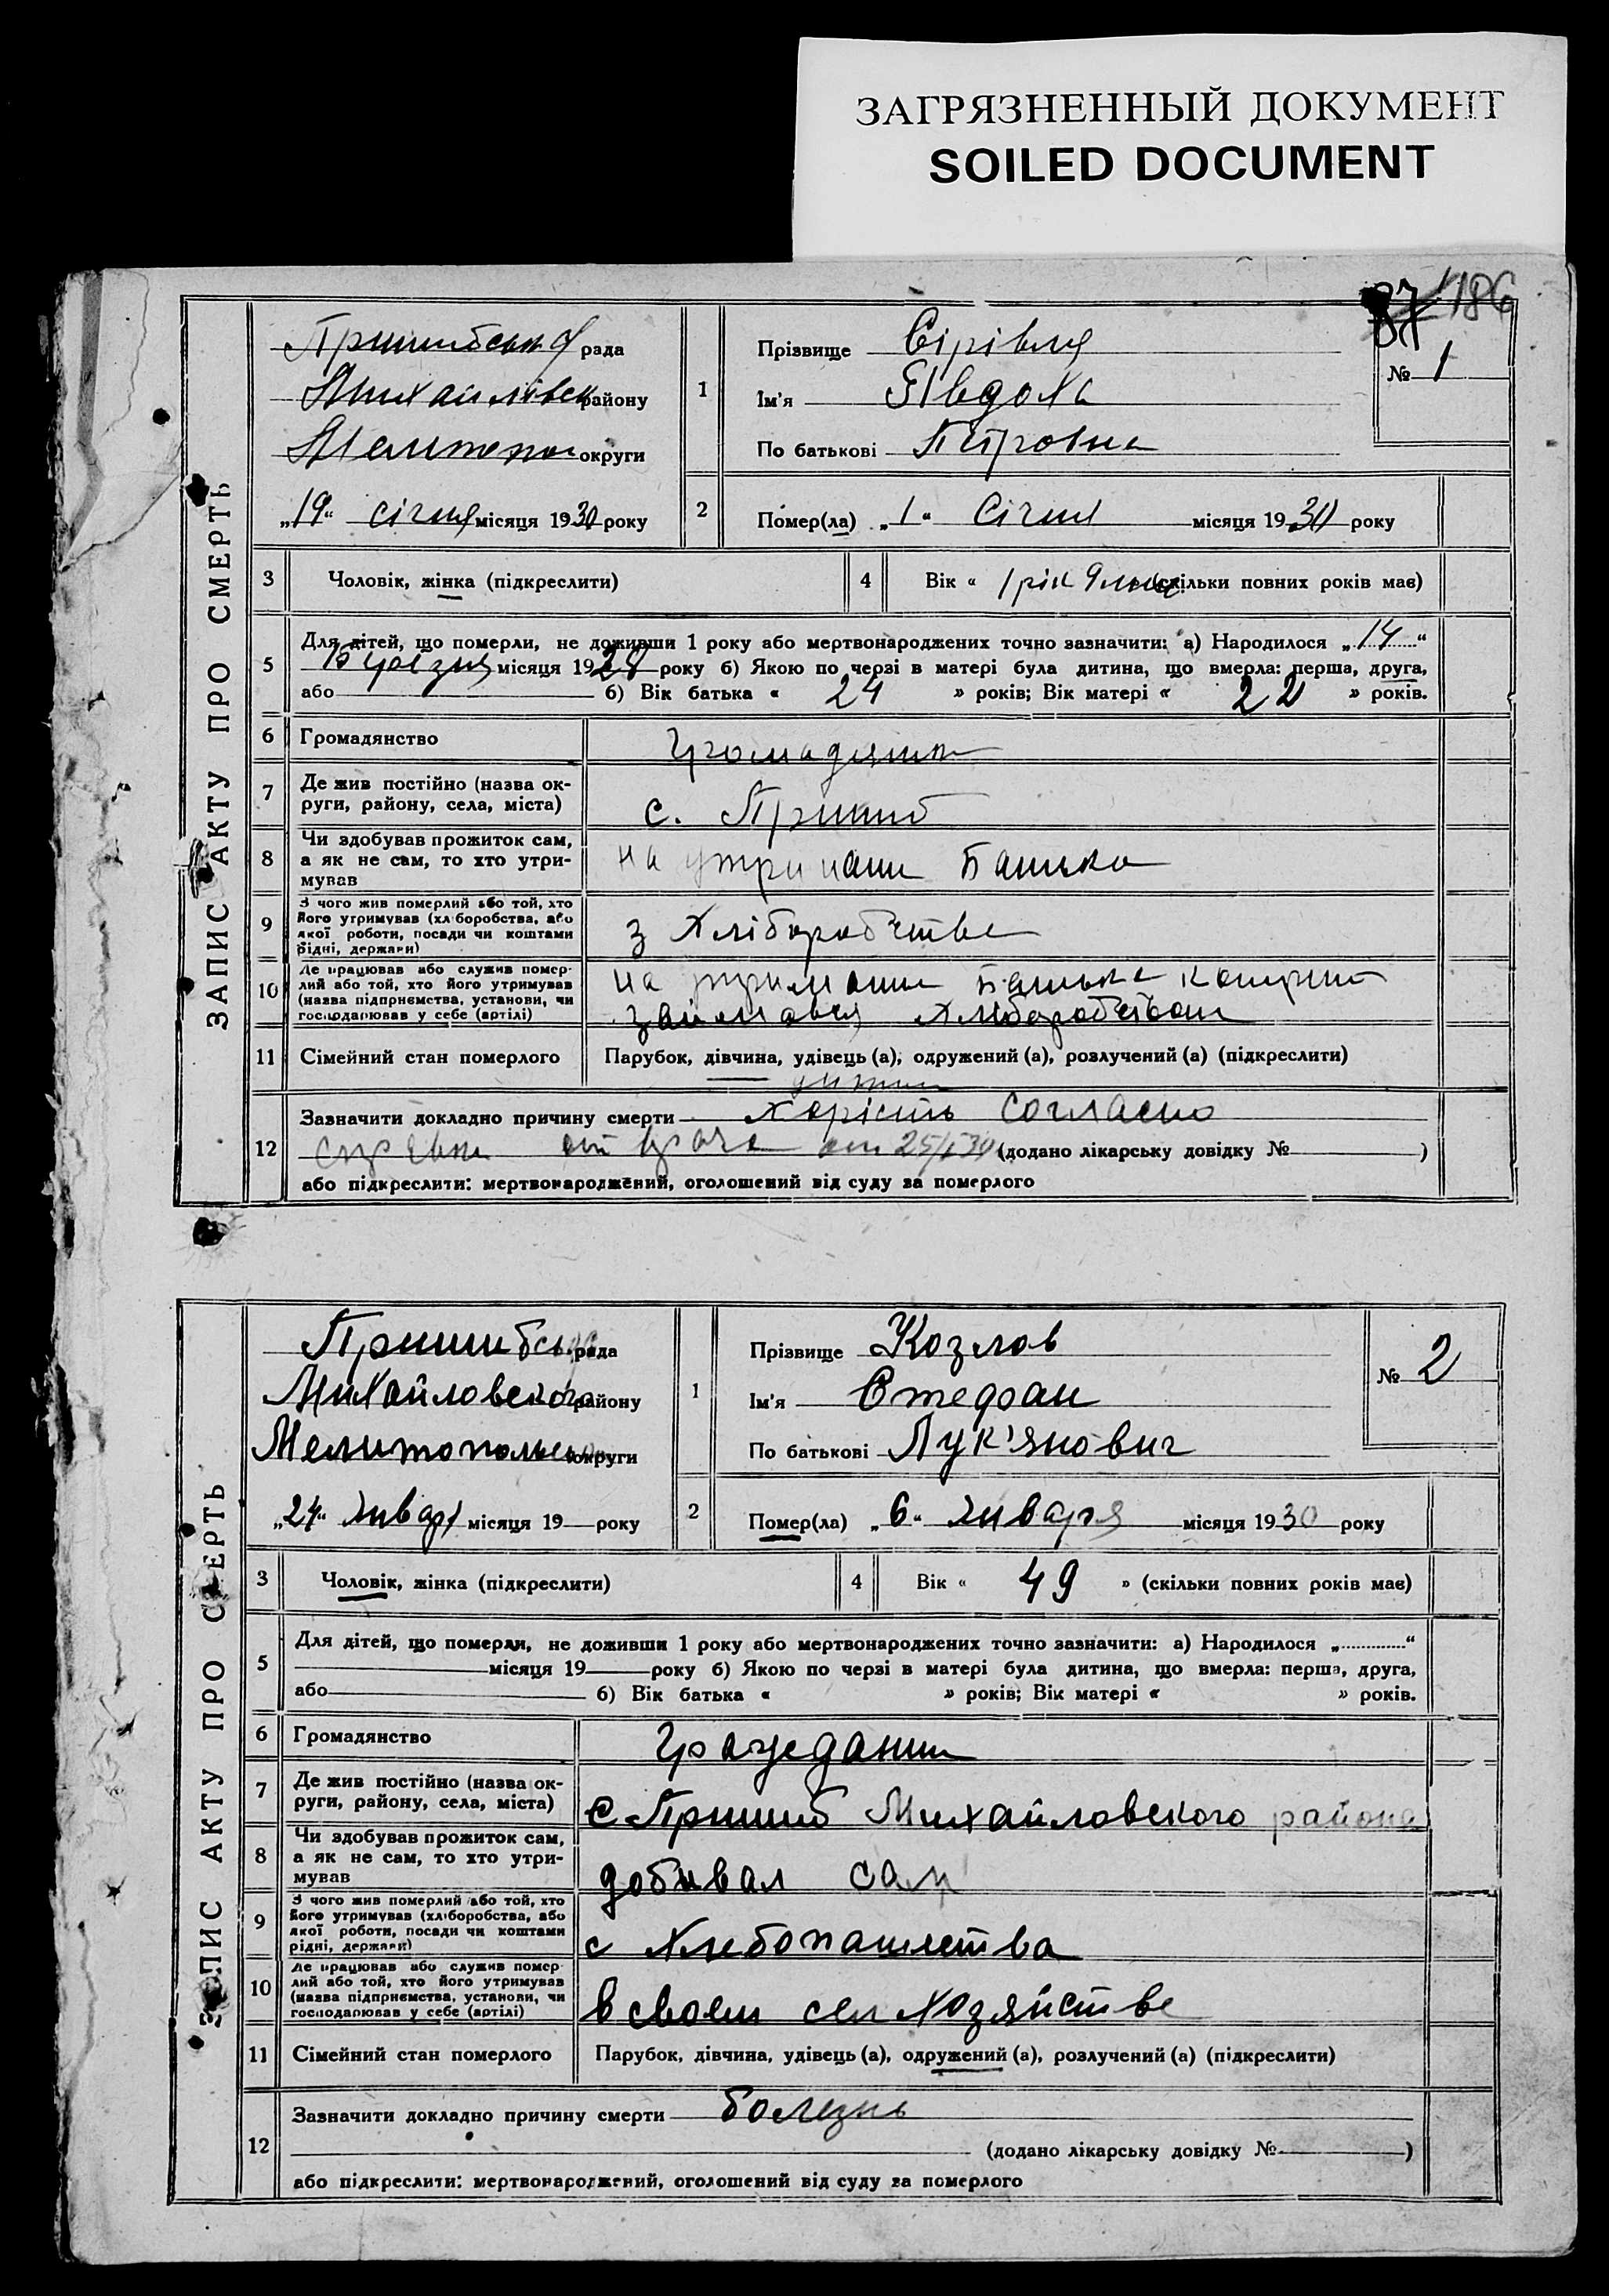 ЗАГРЯЗНЕННЫЙ ДОКУМЕНТ
SOILED DOCUMENT
87 186
ЗАПИС АКТУ ПРО СМЕРТЬ
Пришибська рада
Михайлівськ району
Мелитопол округи
„19“ січня місяця 1930 року
1
Прізвище
Ім'я Явдоха
По батькові Петровна
№ 1
2
Помер(ла) „1“ Січня місяця 1930 року
3 Чоловік, жінка (підкреслити)
4 Вік « 1 рік 9 (скільки повних років має)
5
Для дітей, що померли, не доживши 1 року або мертвонароджених точно зазначити: а) Народилося „14“
місяця 1928 року б) Якою по черзі в матері була дитина, що вмерла: перша, друга,
або б) Вік батька « 24 » років; Вік матері « 22 » років.
6 Громадянство
7 Де жив постійно (назва ок-
руги, району, села, міста) с. Пришиб
8 Чи здобував прожиток сам,
а як не сам, то хто утри-
мував на утримані Батька
9 З чого жив померлий або той, хто
його утримував (хліборобства, або
якої роботи, посади чи коштами
рідні, держави) з Хліборобства
10 Де працював або служив помер-
лий або той, хто його утримував
(назва підприємства, установи, чи
господарював у себе (артілі) на утримані Батька который
займався Хліборобством
11 Сімейний стан померлого Парубок, дівчина, удівець (а), одружений (а), розлучений (а) (підкреслити)
12
Зазначити докладно причину смерти согласно
от врача от 25/I 30 (додано лікарську довідку № )
або підкреслити: мертвонароджений, оголошений від суду за померлого
ЗАПИС АКТУ ПРО СМЕРТЬ
Пришибська рада
Михайловского району
Мелитопольской округи
„24“ января місяця 19 року
1
Прізвище Козлов
Ім'я Стефан
По батькові Лук'янович
№ 2
2
Помер(ла) „6“ января місяця 1930 року
3 Чоловік, жінка (підкреслити)
4 Вік « 49 » (скільки повних років має)
5
Для дітей, що померли, не доживши 1 року або мертвонароджених точно зазначити: а) Народилося „ “
місяця 19 року б) Якою по черзі в матері була дитина, що вмерла: перша, друга,
або б) Вік батька « » років; Вік матері « » років.
6 Громадянство гражданин
7 Де жив постійно (назва ок-
руги, району, села, міста) с Пришиб Михайловского района
8 Чи здобував прожиток сам,
а як не сам, то хто утри-
мував добывал сам
9 З чого жив померлий або той, хто
його утримував (хліборобства, або
якої роботи, посади чи коштами
рідні, держави) с Хлебопашества
10 Де працював або служив помер-
лий або той, хто його утримував
(назва підприємства, установи, чи
господарював у себе (артілі) в своем сел Хозяйстве
11 Сімейний стан померлого Парубок, дівчина, удівець (а), одружений (а), розлучений (а) (підкреслити)
12
Зазначити докладно причину смерти болезнь
(додано лікарську довідку № )
або підкреслити: мертвонароджений, оголошений від суду за померлого